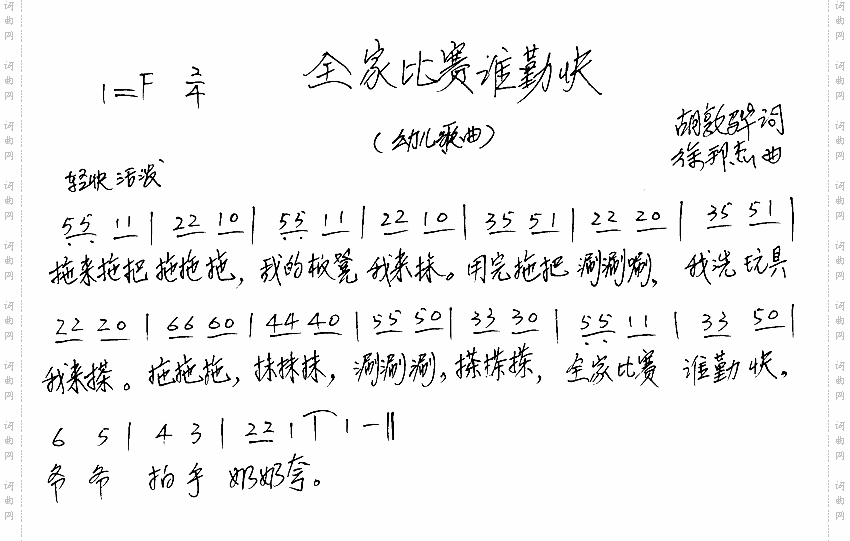 全家比赛谁勤快
1=F 2/4
(幼儿歌曲)
胡敦骅词
徐邦杰曲
轻快活泼
55 11 | 22 10 | 55 11 | 22 10 | 35 51 | 22 20 | 35 51 |
拖来拖把 拖拖拖，我的板凳 我来抹。用完拖把 涮涮涮，我洗玩具
22 20 | 66 60 | 44 40 | 55 50 | 33 30 | 55 11 | 33 50 |
我来搽。拖拖拖，抹抹抹，涮涮涮，搽搽搽，全家比赛 谁勤快。
6 5 | 4 3 | 22 1 | 1 - ‖
爷爷 拍手 奶奶夸。
词曲网